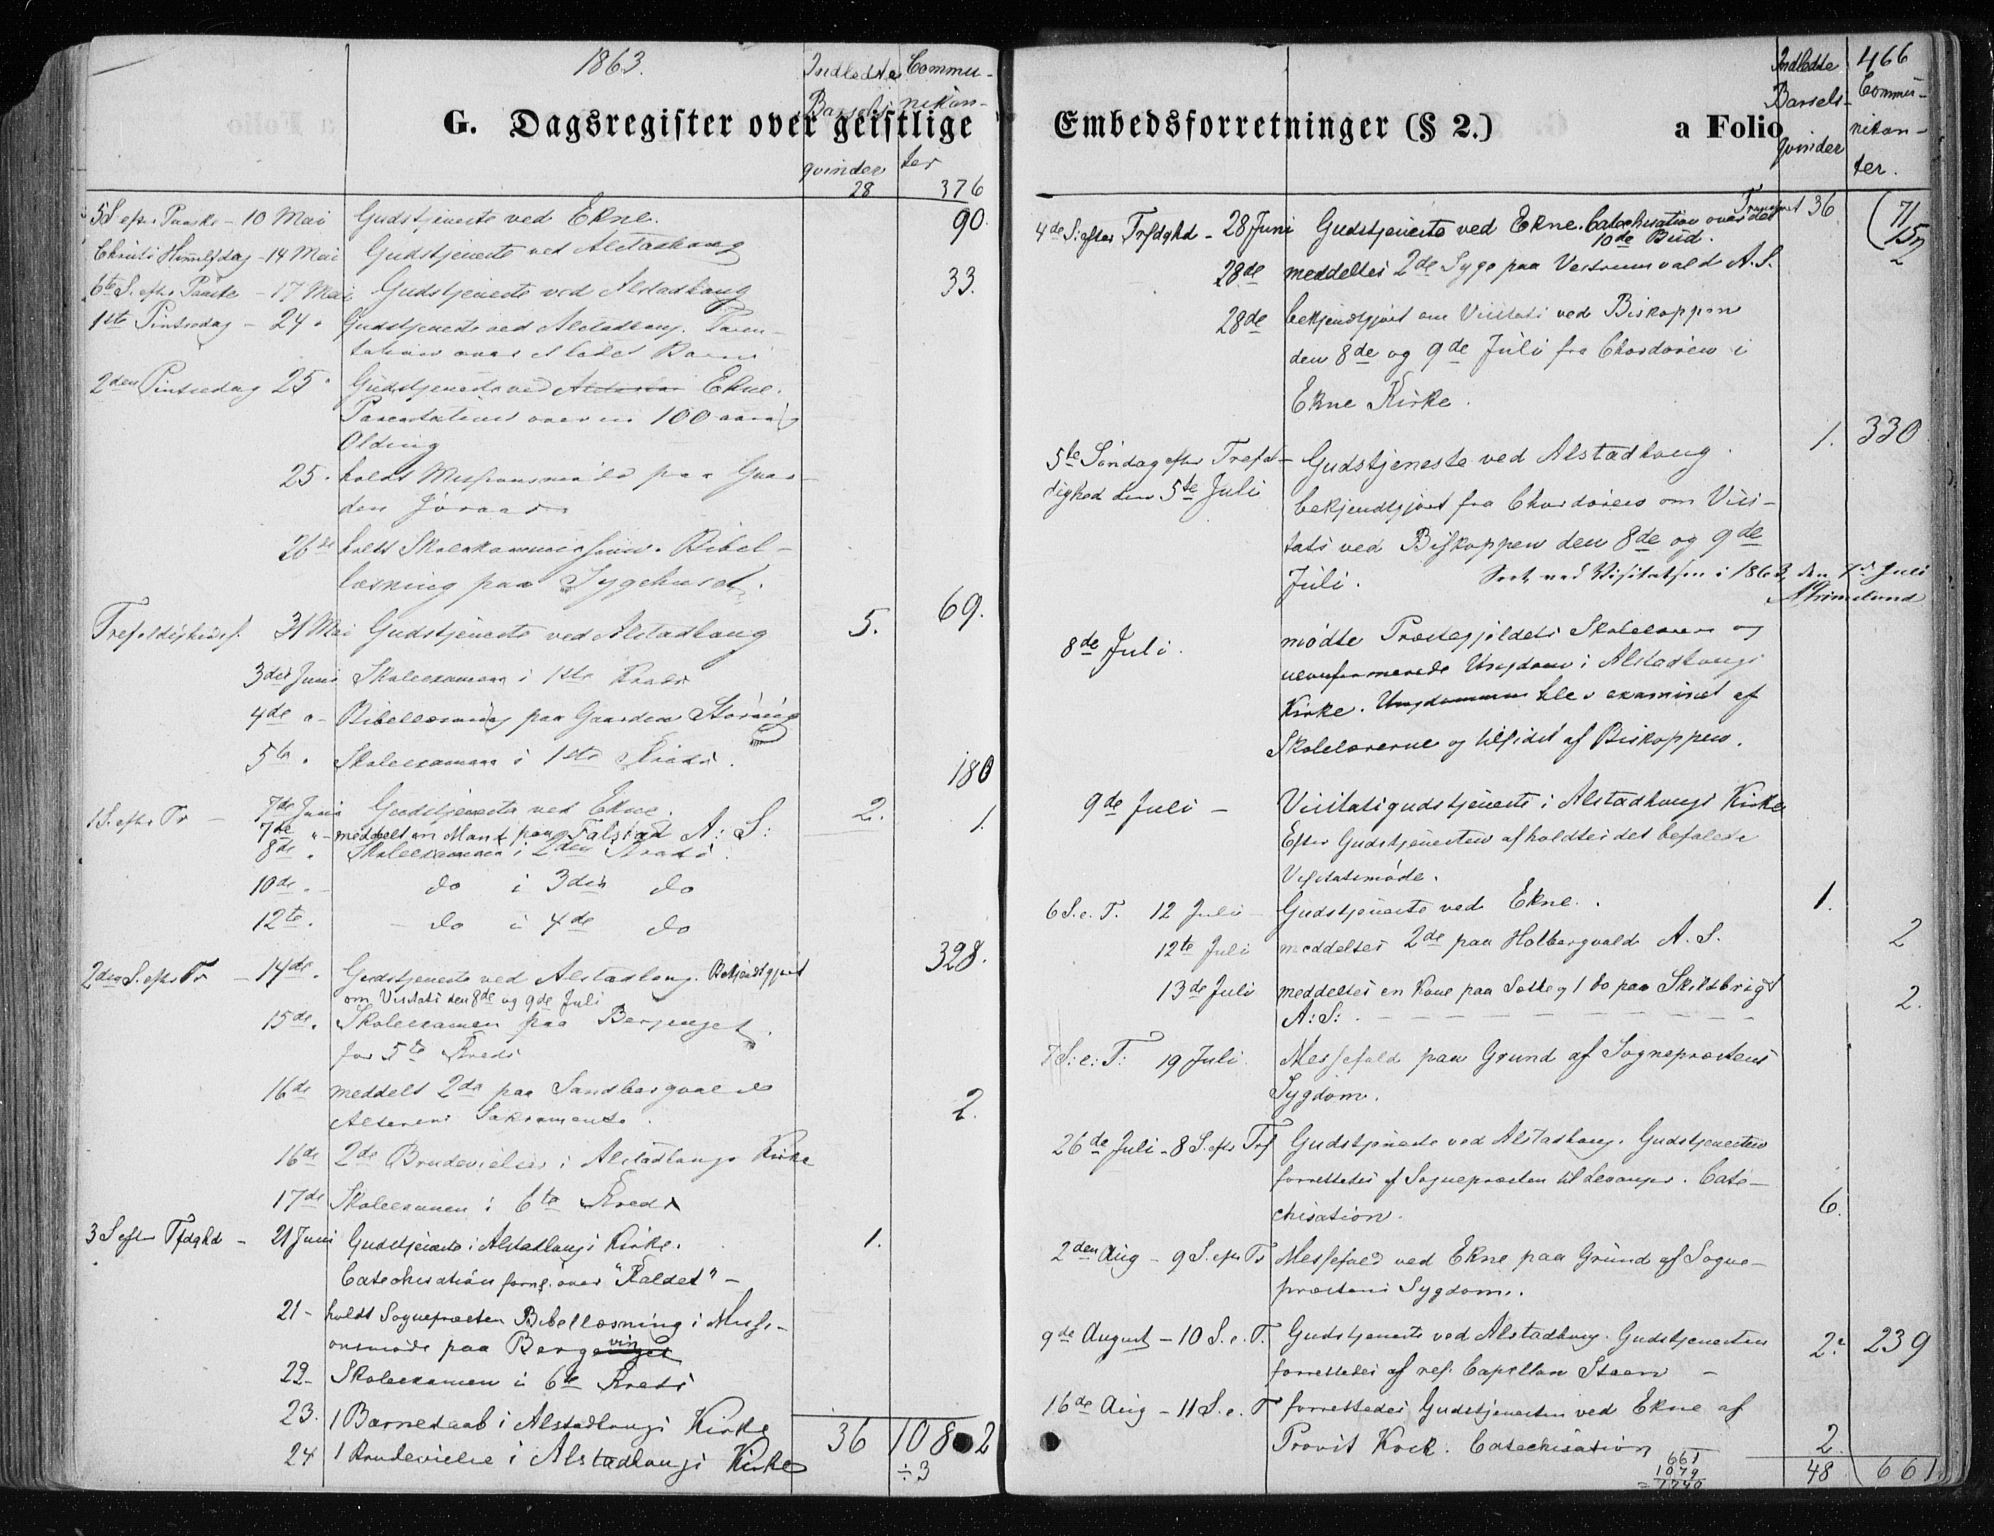 1863.
Indledte Commu-
Barsels nikan-
G. Dagsregister over geistlige
qvinder ter
28 376
5 S. eftr. Paaske - 10 Mai Gudstjeneste ved Ekne. 90.
Christi Himmelfdag - 14 Mai Gudstjeneste ved Alstadhoug
6te S. efter Paaske - 17 Mai Gudstjeneste ved Alstadhoug 33.
1ste Pintsedag - 24 " Gudstjeneste ved Alstadhoug. Paren-
tation over
2den Pintsedag 25. Gudstjeneste ved Ekne.
Parentation over en 100 aarig
Olding
25. holdt Missionsmøde paa Gaar-
den
26de holdt Skolekommission. Bibel-
læsning paa Sygehuset.
69.
Trefoldighedsf. 31 Mai Gudstjeneste ved Alstadhoug 5.
3die Juni Skoleexamen i 1ste Kreds
4de " Bibellæsning paa Gaarden
5te " Skoleexamen i 1ste Kreds.
180
1 S. efter Tr - 7de Juni Gudstjeneste ved Ekne. 2.
7de " - meddelt en Mand paa Falstad A: S: 1.
8de " Skoleexamen i 2den Kreds.
10de " - do i 3die do
12te. - do i 4de do
328.
2den S. efter Tr - 14de. Gudstjeneste ved Alstadhoug. Bekjendtgjort
om Visitats den 8de og 9de Juli
15de. Skoleexamen paa
for 5te Kreds
16de meddelt 2de paa Sandbergvald
Alterens Sakramente. 2.
16de 2de Brudevielser i Alstadhougs Kirke
17de Skoleexamen i 6te Kreds
3 S efter Tfdghd - 21 Juni Gudstjeneste i Alstadhougs Kirke. 1.
Catechisation forrf. over "Kaldet" -
21 - holdt Sognepræsten Bibellæsning i Missi-
onsmøde paa
22 - Skoleexamen i 6te Kreds
23. 1 Barnedaab i Alstadhougs Kirke
24 1 Brudevielse i Alstadhougs Kirke
36 108 2
÷3
466
Indledte Commu-
Barsels- nikan-
Embedsforretninger (§ 2.) a Folio
qvinder ter.
Transport 36 (71
157
4de S: efter Trfdghd - 28 Juni Gudstjeneste ved Ekne. Catechisation over det
10de Bud.
28de meddeltes 2de Syge paa Vestrumvald A. S. 2
28de bekjendtgjort om Visitats ved Biskoppen
den 8de og 9de Juli fra Chordøren i
Ekne Kirke.
5te Søndag efter Trefol- Gudstjeneste ved Alstadhoug. 1. 330
dighed den 5te Juli
bekjendtgjort fra Chordøren om Visi-
tats ved Biskoppen den 8de og 9de
Juli.
Seet ved Visitatsen i 1863, den Juli
AGrimelund
8de Juli. mødte Præstegjeldets Skolelærere og
uconfirmerede Ungdom i Alstadhougs
Kirke. Ungdommen blev examineret af
Skolelærerne og tilsidst af Biskoppen.
9de Juli - Visitatsgudstjeneste i Alstadhougs Kirke
Efter Gudstjenesten afholdtes det befalede
Visitatsmøde.
6 S. e. T. 12 Juli - Gudstjeneste ved Ekne. 1.
12te Juli meddeltes 2de paa Holbergvald A. S. 2
13de Juli meddeltes en Kone paa og 1 do paa 2.
A: S:
7 S: e: T: 19 Juli. Messefald paa Grund af Sognepræstens
Sygdom.
26de Juli - 8 S. eftr Trf Gudstjeneste ved Alstadhoug. Gudstjenesten
forrettedes af Sognepræsten til Levanger. Cate-
chisation. 6.
2den Aug - 9 S. eftr Tr Messefald ved Ekne paa Grund af Sogne-
præstens Sygdom.
9de August - 10 S. e. T. Gudstjeneste ved Alstadhoug. Gudstjenesten 2. 239
forrettedes af res. Capellan
16de Aug - 11 S. e. T forrettedes Gudstjenesten ved Ekne af
Provst Kock. Catechisation 2.
48 661
661
1079
= 1740